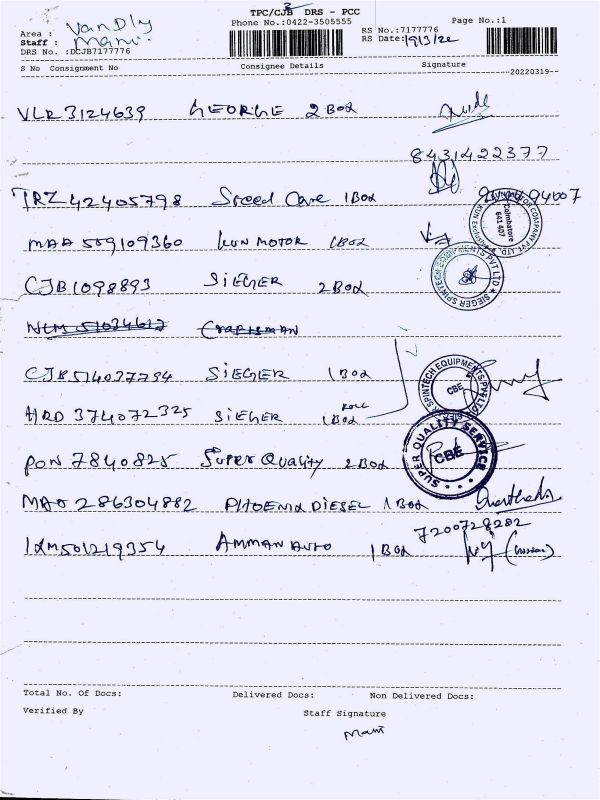 TPC/CJB DRS - PCC
Phone No.:0422-3505555
Page No.:1
Area : VanDly
Staff : Mani
RS No.:7177776
RS Date: 19/3/22
DRS No. :DCJB7177776
S No Consignment No Consignee Details Signature
--20220319--
VLR 3124639 GEORGE 2 Box
8431422377
TRZ 42405798 Speed Care 1 Box
MAA 509109360 KUN MOTOR 1 Box
Coimbatore
641 407
CJB1098893 SIEGER 2 Box
SIEGER SPINTECH EQUIPMENTS PVT LTD
NLM 51034617 CRAFTSMAN
CJB514037794 SIEGER 1 Box
SPINTECH EQUIPMENTS PVT LTD
CBE
HRD 374072325 SIEGER 1 Box ROLL
SUPER QUALITY SERVICE
CBE
PON 7840825 Super Quality 2 Box
MAO 286304882 PHOENIX DIESEL 1 Box
7200728282
IXM501219354 AMMAN AUTO 1 Box
Total No. Of Docs: Delivered Docs: Non Delivered Docs:
Verified By Staff Signature
Mani